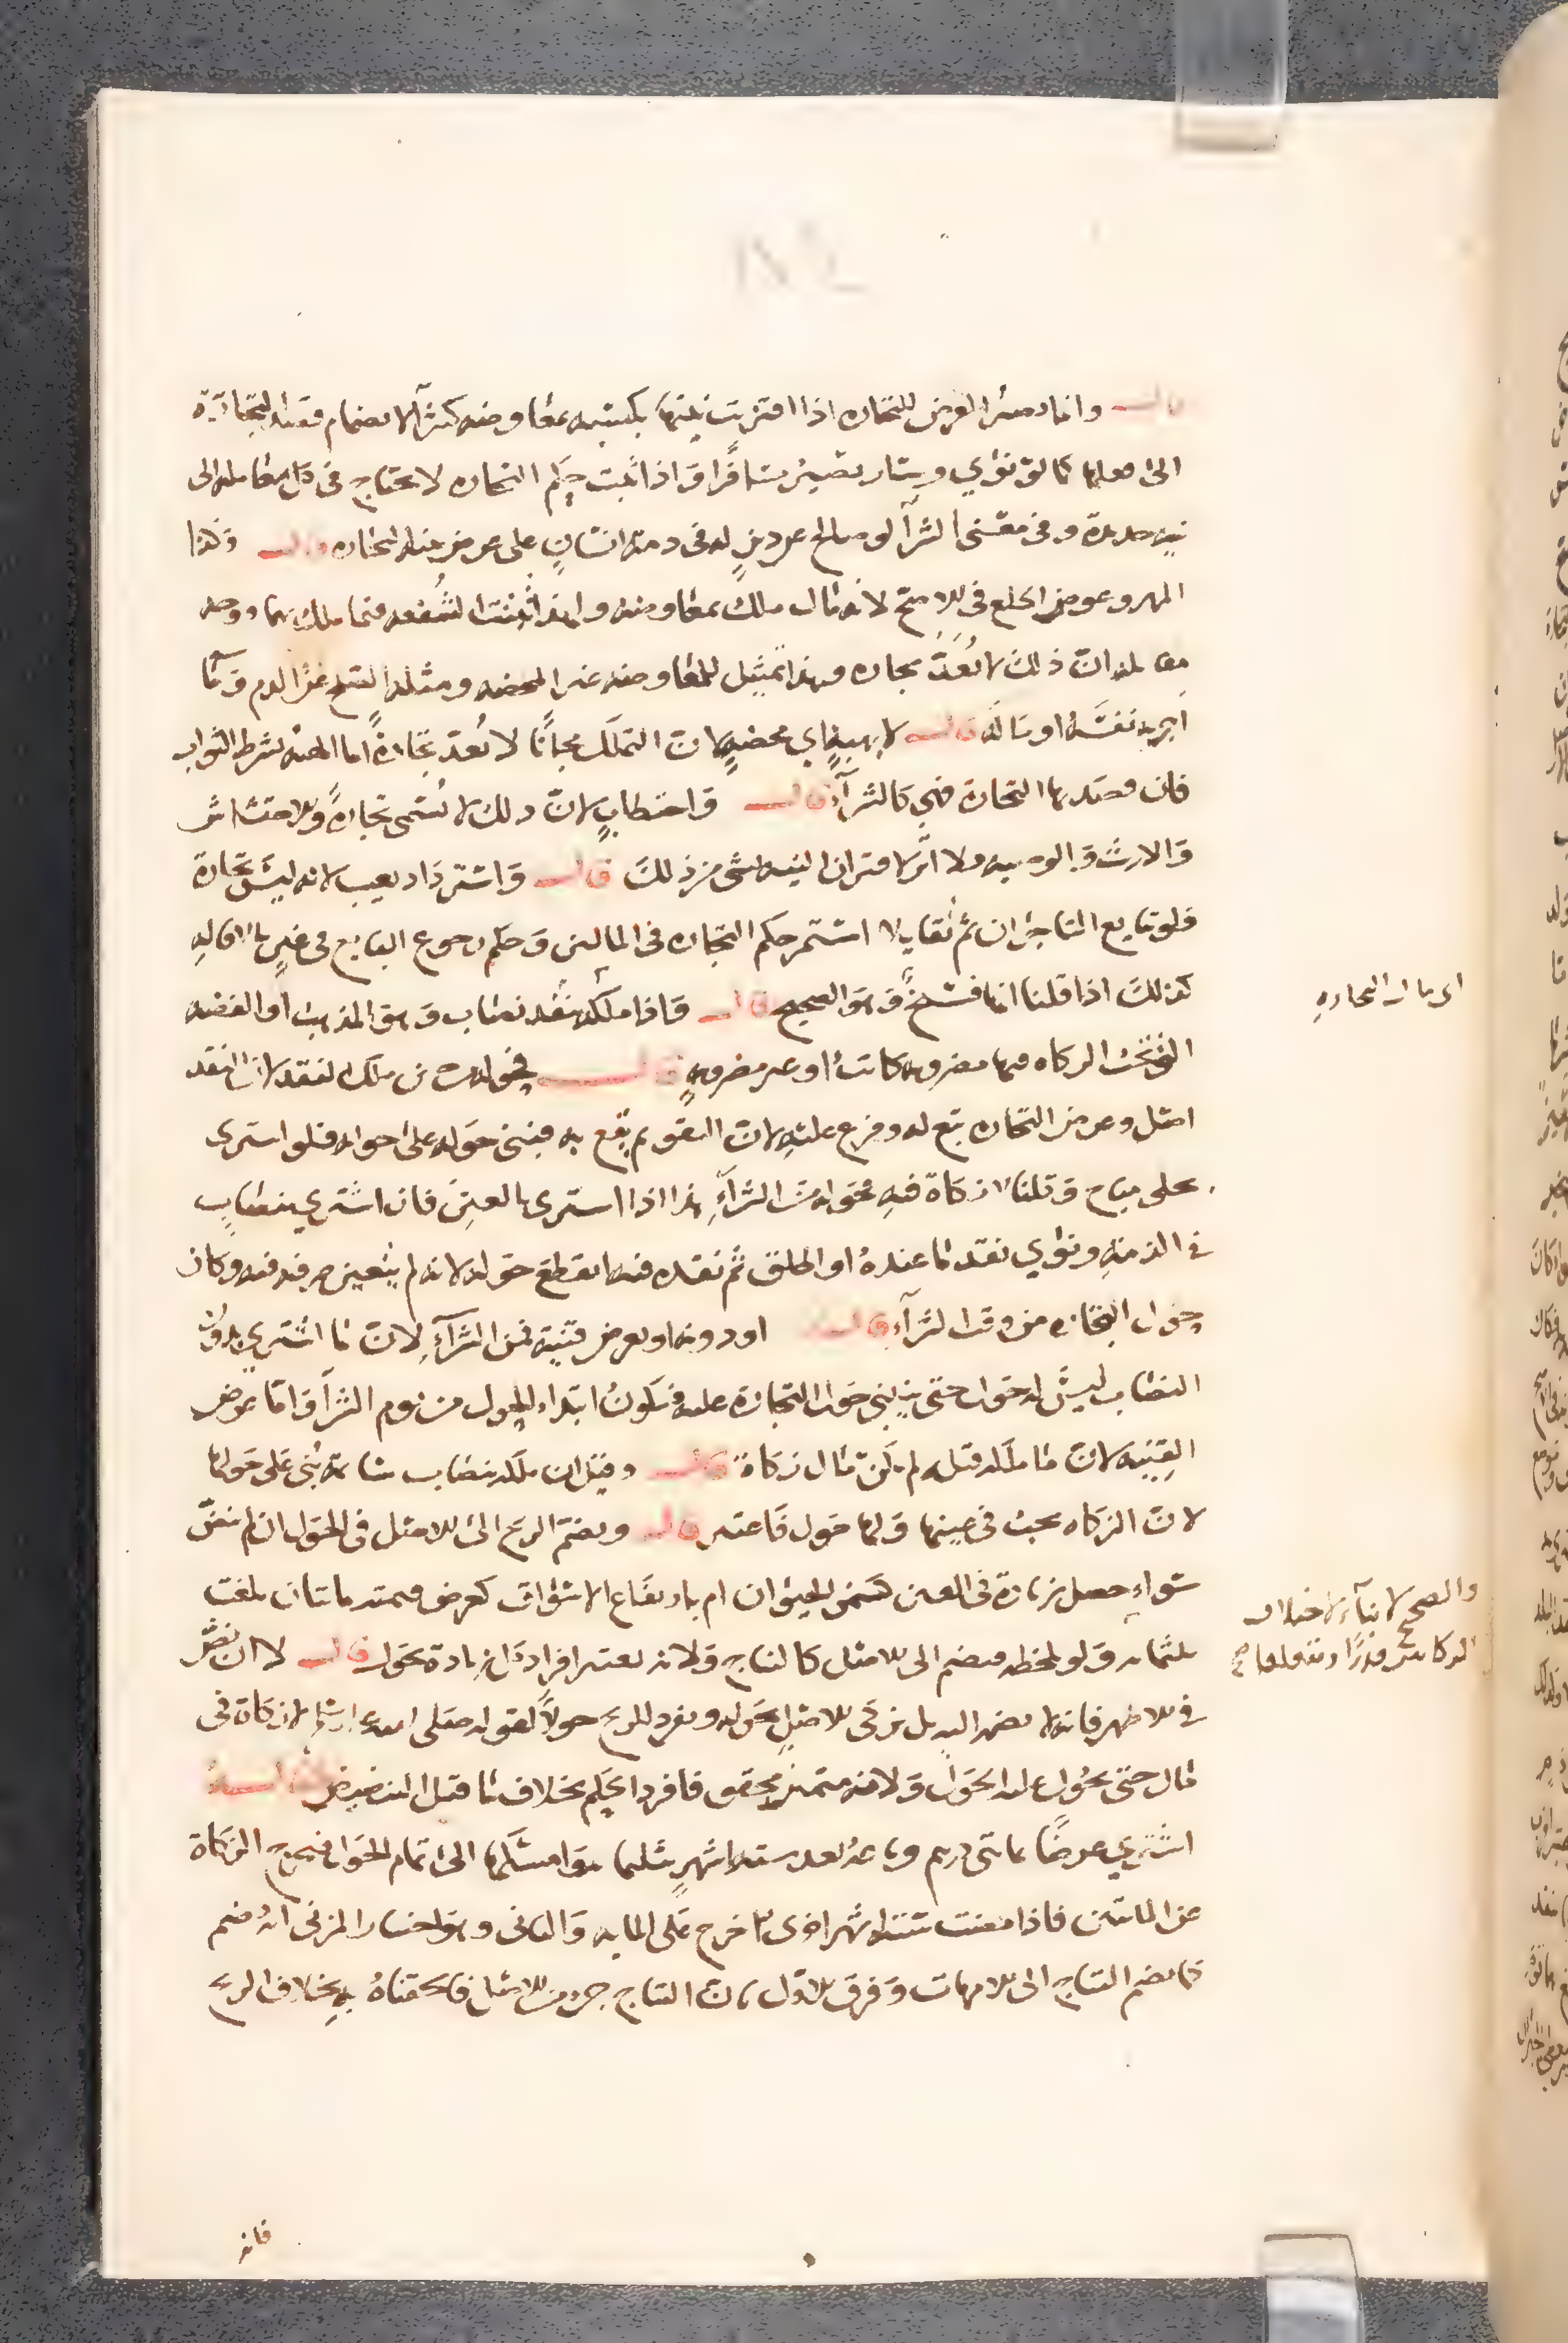 قال وانما يصير العرض للتجارة اذا اقترنت نيتها بكسبه بمعاوضة كشرآ لانضمام قصد التجارة
الى فعلها كما لو نوى وسار يصير مسافرا واذا ثبت حكم التجارة لا يحتاج في كل معاملة الى
نية جديدة وفي معنى الشرآ لو صالح عن دين له في ذمة انسان على عوض بنية التجارة قال وكذا
المهر وعوض الخلع في الاصح لانه مال ملك بمعاوضة ولهذا ثبتت الشفعة فيما ملك بهما ووجه
مقابله ان ذلك لا يعد تجارة وهذا تمثيل للمعاوضة غير المحضة ومثله الصلح عن الدم وما
اجر به نفسه او ماله قال لا بهبة اي محضة لان التملك مجانا لا يعد تجارة اما الهبة بشرط الثواب
فان قصد بها التجارة فهي كالشرآء قال واحتطاب لان ذلك لا يسمى تجارة والاحتشاش
والارث والوصية ولا اثر لاقتران النية بشي من ذلك قال واسترداد بعيب لانه ليس تجارة
فلو تبايع التاجران ثم تقايلا استمر حكم التجارة في المالين وحكم رجوع البايع في عين بالاقالة
كذلك اذا قلنا انها فسخ وهو الصحيح قال واذا ملكه بنقد نصاب وهو الذهب او الفضة
التي تجب الزكاة فيهما مضروبة كانت او غير مضروبة قال فحوله من حين ملك النقد لان النقد
اصل وعرض التجارة تبع له وفرع عليه لان التقويم يقع به فبنى حوله على حوله فلو اشترى
بحلي مباح وقلنا لا زكاة فيه فحوله من الشرآء هذا اذا اشترى بالعين فان اشترى بنصاب
في الذمة ونوى نقد ما عنده او اطلق ثم نقده فيه انقطع حوله لانه لم يتعين صرفه فيه وكان
حول التجارة من وقت الشرآء قال او دونه او بعرض قنية فمن الشرآء لان ما اشترى بدون
النصاب ليس له حول حتى يبنى حول التجارة عليه فيكون ابتداء الحول من يوم الشرآ واما عرض
القنية لان ما ملكه قبله لم يكن مال زكاة قال وقيل ان ملكه بنصاب سائمة بنى على حولها
لان الزكاة تجب في عينها ولها حول فاعتبر قال ويضم الربح الى الاصل في الحول ان لم ينض
سواء حصل بزيادة في العين كسمن الحيوان ام بارتفاع الاسواق كعرض قيمته مائتان بلغت
ثلثمائة ولو بلحظة فيضم الى الاصل كالنتاج ولانه يعسر افراد كل زيادة بحول قال لا ان نض
في الاظهر فانه لا يضم اليه بل يزكي الاصل بحوله ويفرد الربح حولا لقوله صلى الله عليه وسلم لا زكاة في
مال حتى يحول عليه الحول ولانه متميز محقق فافرد بحكم بخلاف ما قبل التنضيض مثاله
اشترى عرضا بمائتي درهم وباعه بعد ستة اشهر بثلثمائة وامسكها الى تمام الحول فيخرج الزكاة
عن المائتين فاذا مضت ستة اشهر اخرى اخرج على المائة والثاني وهو اختيار المزني انه يضم
كما يضم النتاج الى الامهات وفرق الاول بان النتاج جزء من الاصل فالحقناه به بخلاف الربح
فانه
اي مال التجارة
والصحيح لا بناء لاختلاف
الزكاتين قدرا ومتعلقا صح